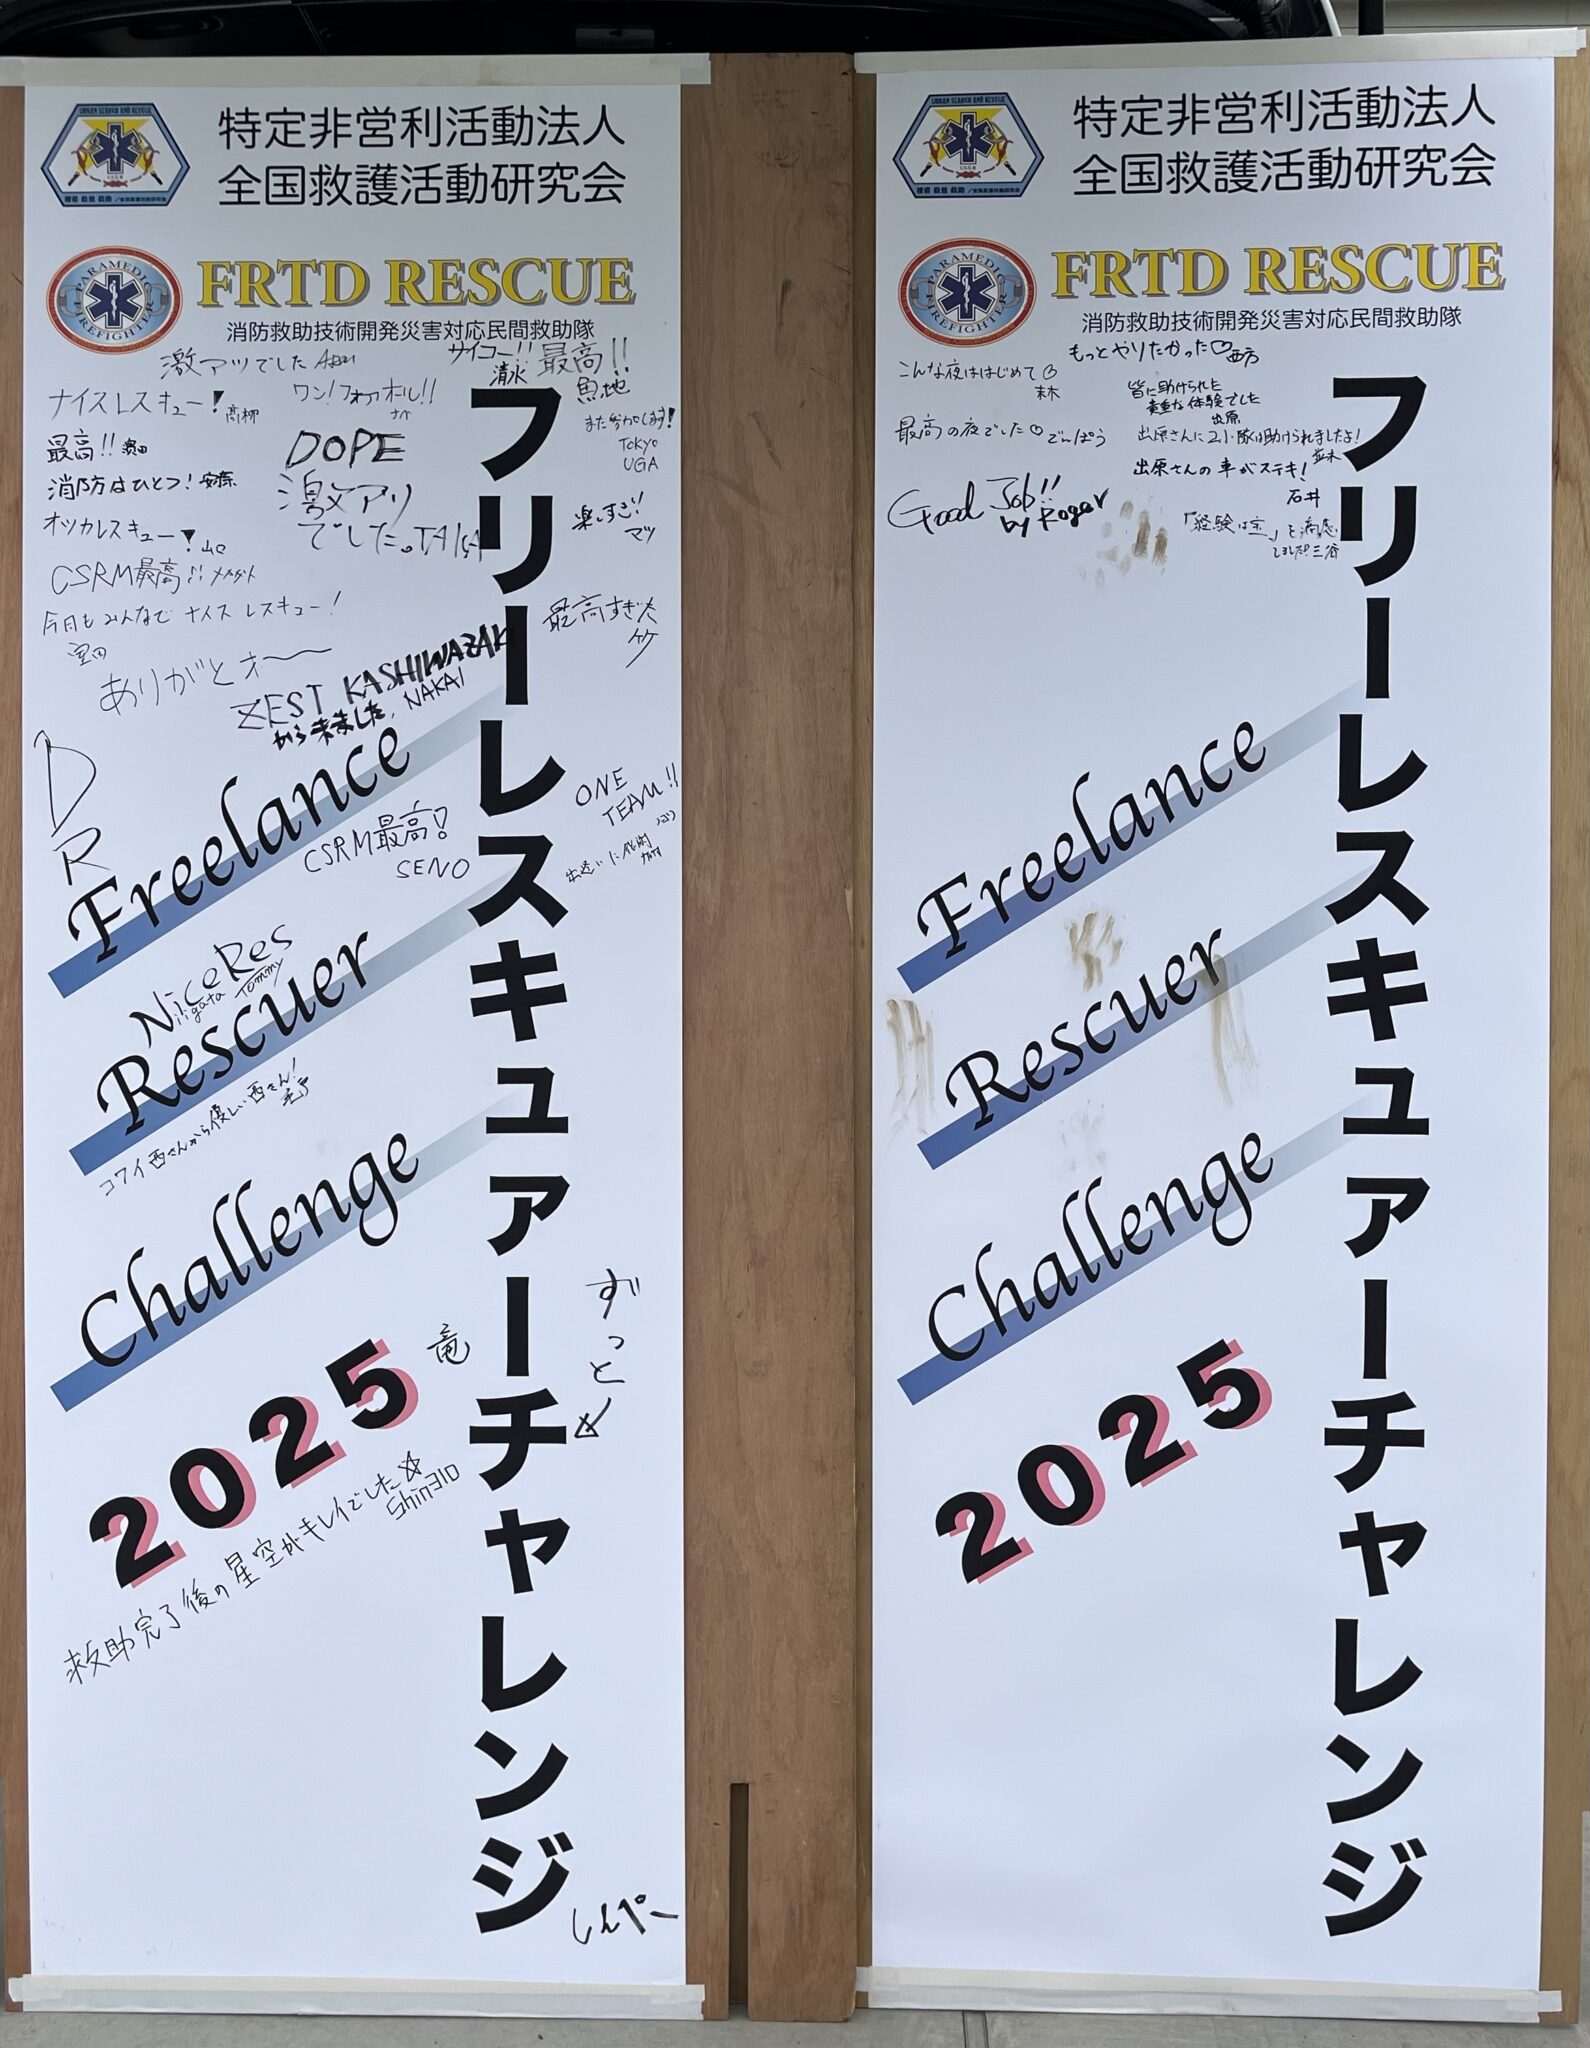 URBAN SEARCH AND RESCUE
捜索 救急 救助 / 全国救護活動研究会
特定非営利活動法人
全国救護活動研究会
PARAMEDIC
FIREFIGHTER
FRTD RESCUE
消防救助技術開発災害対応民間救助隊
激アツでした
サイコー!! 清水
最高!! 魚地
ナイスレスキュー! 高柳
ワン!フォアオール!!
また参加します!
TOKYO
UGA
最高!!
DOPE
消防はひとつ! 安斎
激アツ
でした。TAKA
楽しすぎ!!
マツ
オツカレスキュー! 山口
CSRM最高!!
今日もみんなでナイスレスキュー!
室田
最高すぎ大
竹
ありがとオ〜〜
ZEST KASHIWAZAKI
から来ました, NAKAI
DR
ONE
TEAM!!
CSRM最高!
SENO
出逢いに感謝
Freelance
Nice Res
Niigata Tommy
Rescuer
コワイ西さんから優しい西さん!
Challenge
2025
竜
ずっと
救助完了後の星空がキレイでした☆
Shin310
しんぺー
フリーレスキュアーチャレンジ
URBAN SEARCH AND RESCUE
捜索 救急 救助 / 全国救護活動研究会
特定非営利活動法人
全国救護活動研究会
PARAMEDIC
FIREFIGHTER
FRTD RESCUE
消防救助技術開発災害対応民間救助隊
もっとやりたかった♡西方
こんな夜ははじめて
皆に助けられた
貴重な体験でした
出原
最高の夜でした でんぱう
出原さんに2小隊は助けられましたよ!
並木
出原さんの車がステキ!
石井
Good Job!!
by Roger
「経験は宝」と痛感
しました!! 三谷
Freelance
Rescuer
Challenge
2025
フリーレスキュアーチャレンジ